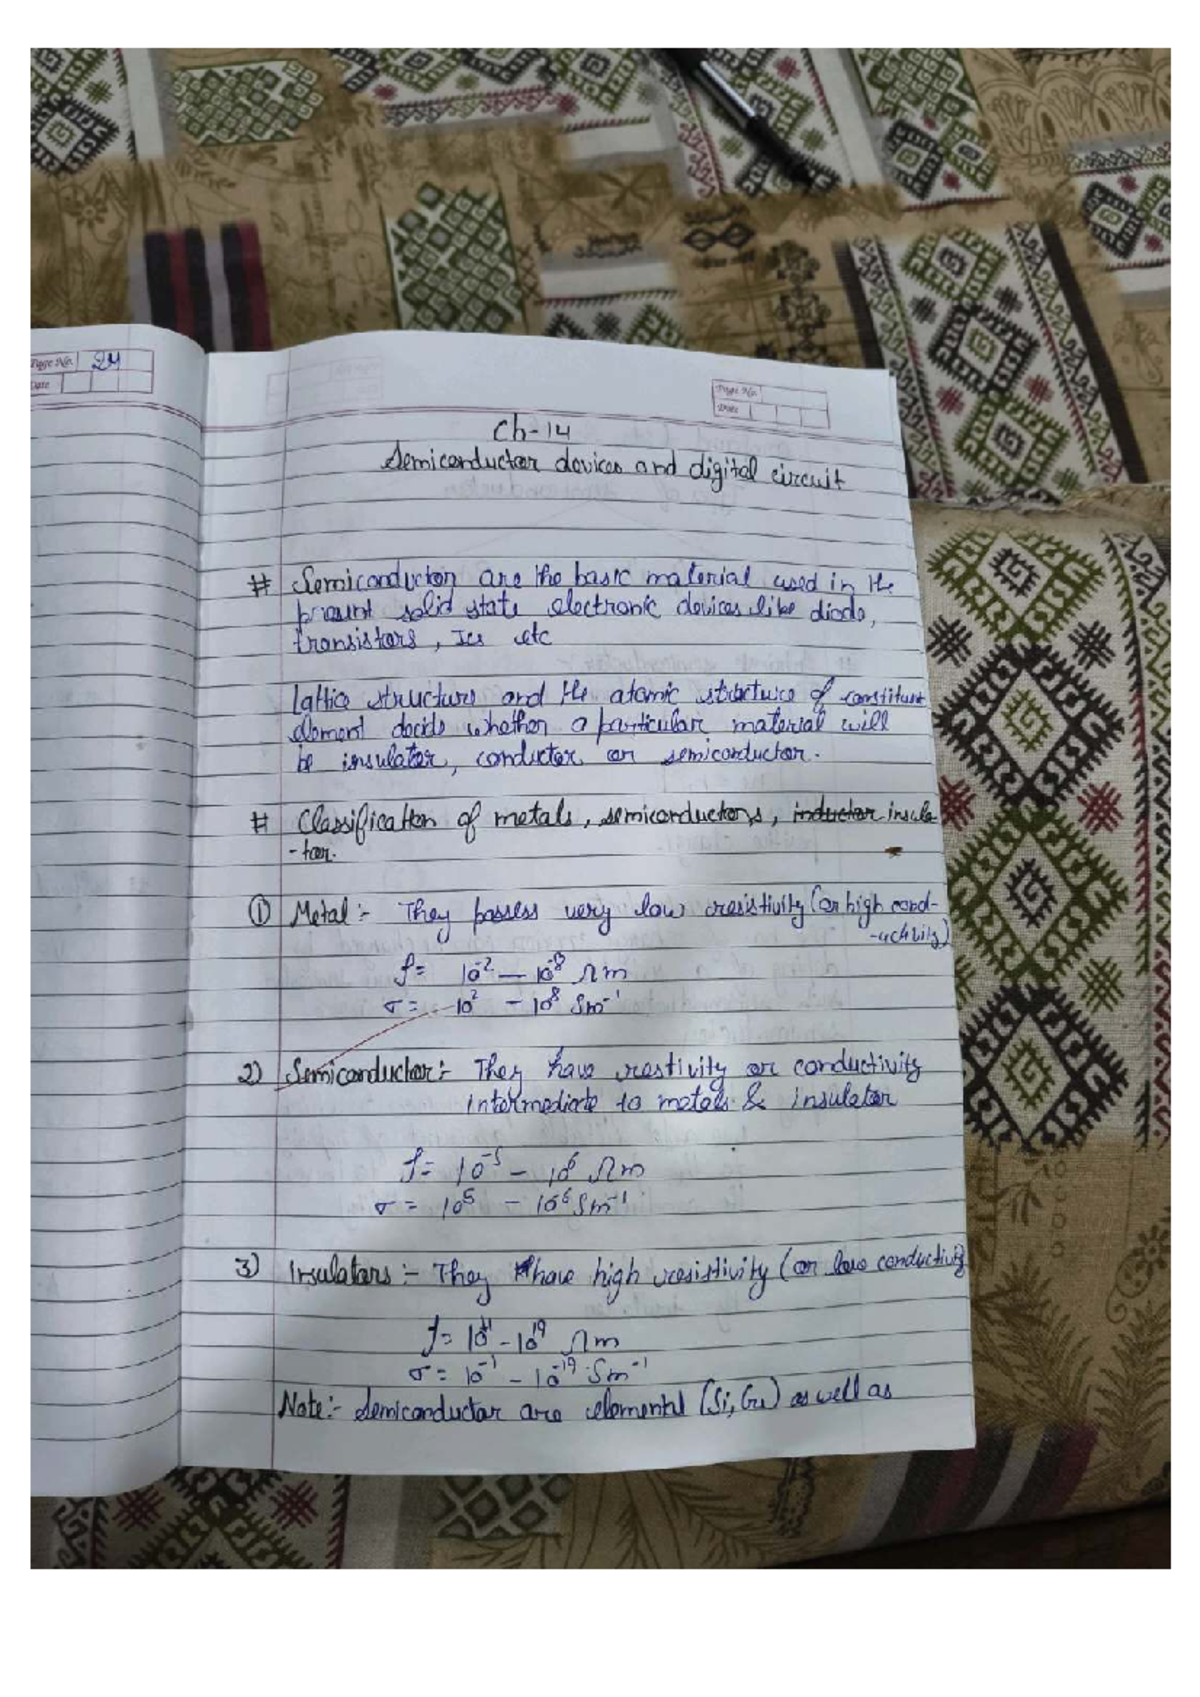 Page No. 24
Date
Page No.
Date
Ch-14
Semiconductor devices and digital circuit
# Semiconductor are the basic material used in the
present solid state electronic devices like diode,
transistors, Ics etc
Lattice structure and the atomic structure of constituent
element decide whether a particular material will
be insulator, conductor or semiconductor.
# Classification of metals, semiconductors, inductor insula-
-tor.
① Metal:- They possess very low resistivity (or high cond-
-uctivity)
ρ = 10⁻² — 10⁻⁸ Ωm
σ = 10² – 10⁸ Sm⁻¹
2) Semiconductor:- They have resstivity or conductivity
intermediate to metals & insulator
ρ = 10⁻⁵ – 10⁶ Ωm
σ = 10⁵ – 10⁻⁶ Sm⁻¹
3) Insulators:- They have high resistivity (or low conductivity
ρ = 10¹¹ – 10¹⁹ Ωm
σ = 10⁻¹ – 10⁻¹⁹ Sm⁻¹
Note:- Semiconductor are elemental (Si, Ge) as well as